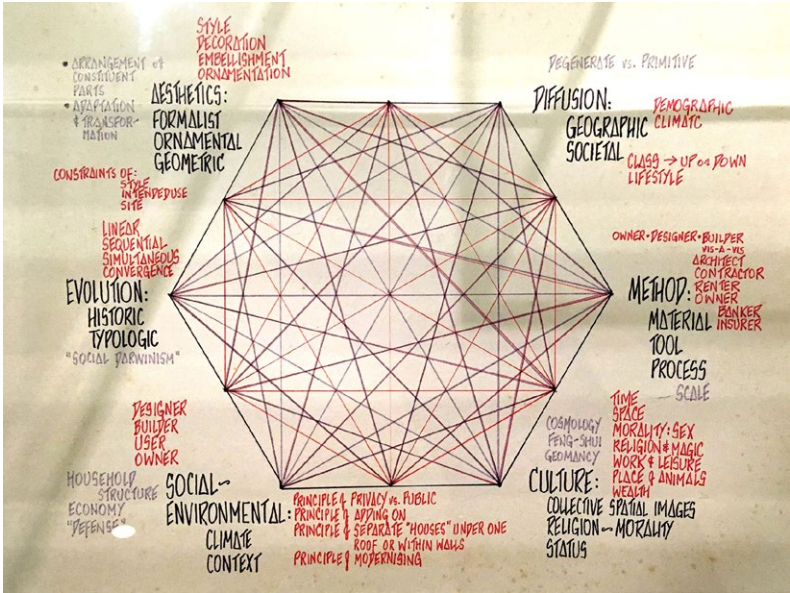 STYLE
DECORATION
EMBELLISHMENT
ORNAMENTATION
• ARRANGEMENT of
CONSTITUENT
PARTS
• ADAPTATION
& TRANSFOR-
MATION
AESTHETICS:
FORMALIST
ORNAMENTAL
GEOMETRIC
DEGENERATE vs. PRIMITIVE
DIFFUSION:
GEOGRAPHIC
SOCIETAL
DEMOGRAPHIC
CLIMATC
CLASS → UP or DOWN
LIFESTYLE
CONSTRAINTS OF:
STYLE
INTENDEDUSE
SITE
LINEAR
SEQUENTIAL
SIMULTANEOUS
CONVERGENCE
EVOLUTION:
HISTORIC
TYPOLOGIC
"SOCIAL DARWINISM"
OWNER•DESIGNER•BUILDER
VIS-A-VIS
ARCHITECT
CONTRACTOR
RENTER
OWNER
BANKER
INSURER
METHOD:
MATERIAL
TOOL
PROCESS
SCALE
DESIGNER
BUILDER
USER
OWNER
HOUSEHOLD
STRUCTURE
ECONOMY
"DEFENSE"
SOCIAL~
ENVIRONMENTAL:
CLIMATE
CONTEXT
PRINCIPLE of PRIVACY vs. PUBLIC
PRINCIPLE of ADDING ON
PRINCIPLE of SEPARATE "HOUSES" UNDER ONE
ROOF OR WITHIN WALLS
PRINCIPLE of MODERNISING
COSMOLOGY
FENG-SHUI
GEOMANCY
TIME
SPACE
MORALITY: SEX
RELIGION & MAGIC
WORK & LEISURE
PLACE & ANIMALS
WEALTH
CULTURE:
COLLECTIVE SPATIAL IMAGES
RELIGION~MORALITY
STATUS